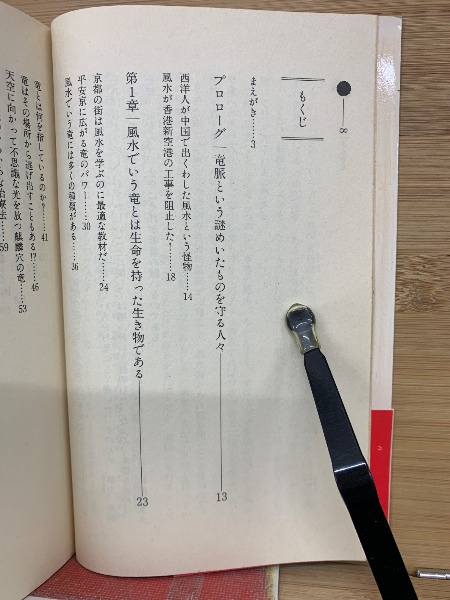 ∞
もくじ
まえがき……3
プロローグ─竜脈という謎めいたものを守る人々──13
西洋人が中国で出くわした風水という怪物……14
風水が香港新空港の工事を阻止した!……18
第1章─風水でいう竜とは生命を持った生き物である──23
京都の街は風水を学ぶのに最適な教材だ……24
平安京に広がる竜のパワー……30
風水でいう竜には多くの種類がある……36
竜とは何を指しているのか?……41
竜はその場所から逃げ出すこともある!?……46
天空に向かって不思議な光を放つ麒麟穴の竜……53
治療法……59